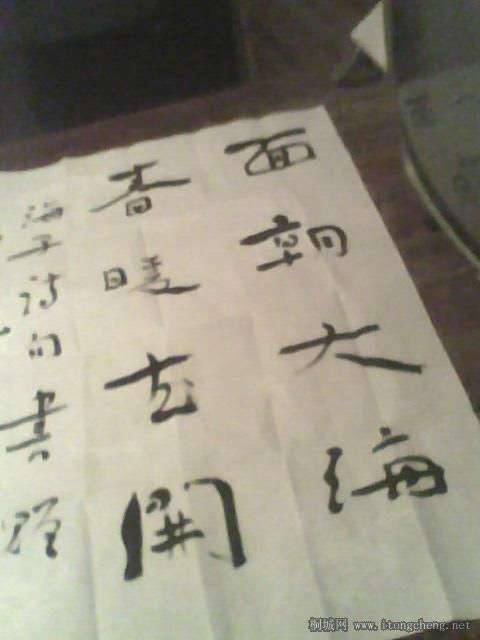 面朝大海
春暖花開
海子诗句書
桐城网 www.itongcheng.net